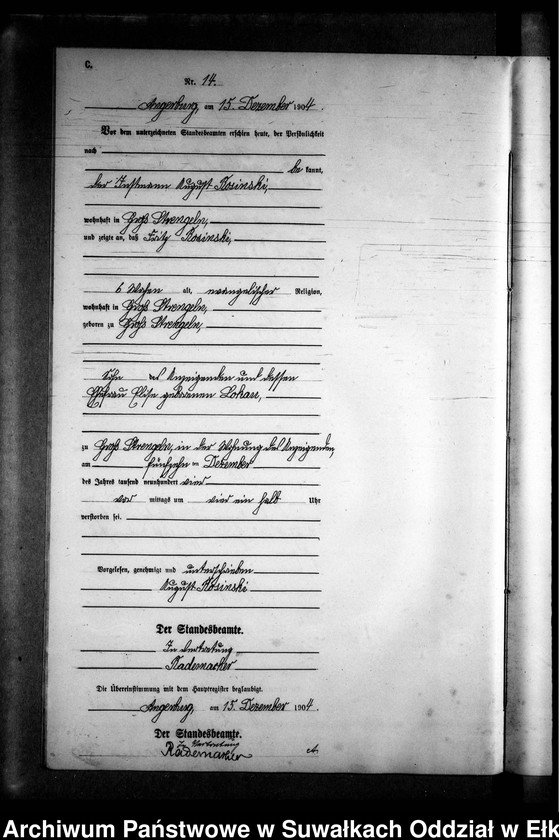 C.
Nr. 14.
Angerburg, am 15. Dezember 1904.
Vor dem unterzeichneten Standesbeamten erschien heute, der Persönlichkeit
nach
be kannt,
der Instmann August Kosinski,
wohnhaft in Groß Strengeln,
und zeigte an, daß Fritz Kosinski,
6 Wochen alt, evangelischer Religion,
wohnhaft in Groß Strengeln,
geboren zu Groß Strengeln,
Sohn des Anzeigenden und dessen
Ehefrau Elise geborenen
zu Groß Strengeln, in der Wohnung des Anzeigenden,
am fünfzehnten Dezember
des Jahres tausend neunhundert vier
vor mittags um vier ein halb Uhr
verstorben sei.
Vorgelesen, genehmigt und unterschrieben
August Kosinski
Der Standesbeamte.
In Vertretung
Rademacher
Die Übereinstimmung mit dem Hauptregister beglaubigt.
Angerburg, am 15. Dezember 1904.
Der Standesbeamte.
In Vertretung
Rademacher
Archiwum Państwowe w Suwałkach Oddział w Ełk